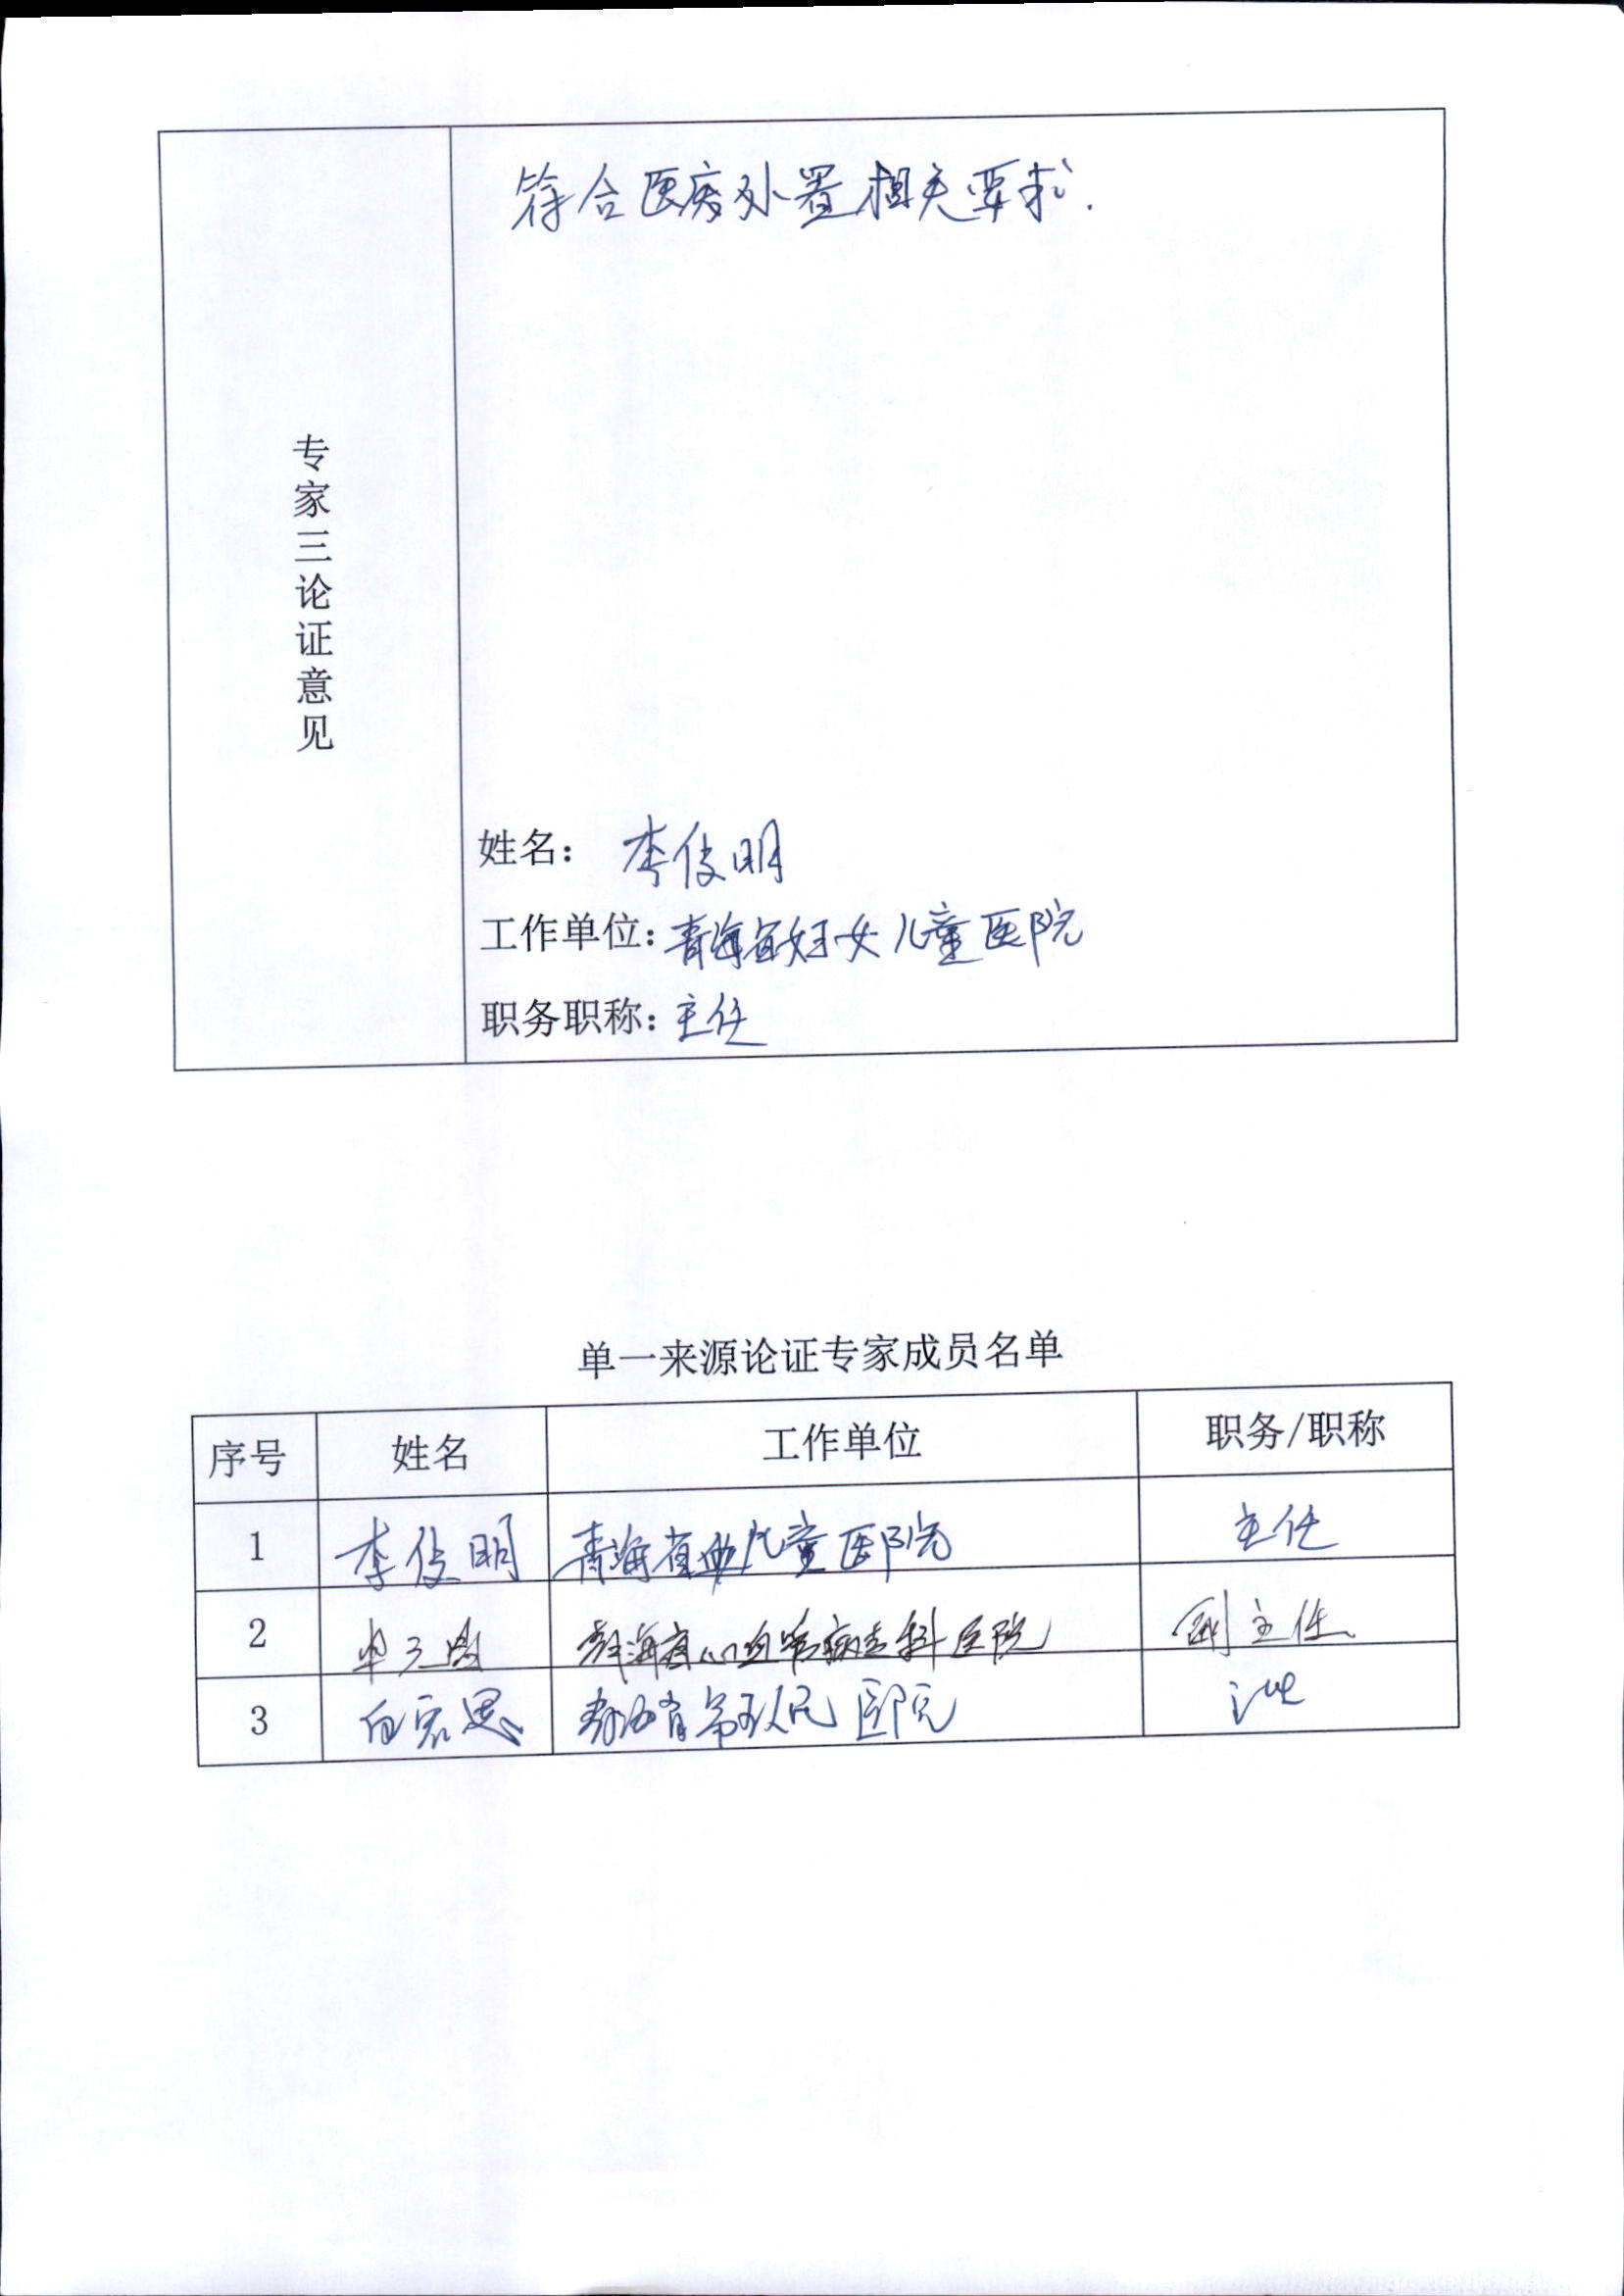 符合医废处置相关要求.
专
家
三
论
证
意
见
姓名： 李俊明
工作单位：青海省妇女儿童医院
职务职称：主任
单一来源论证专家成员名单
序号 姓名 工作单位 职务/职称
1 李俊明 青海省妇儿童医院 主任
2 青海省心血管病专科医院 副主任
3 青海省第五人民医院 主任